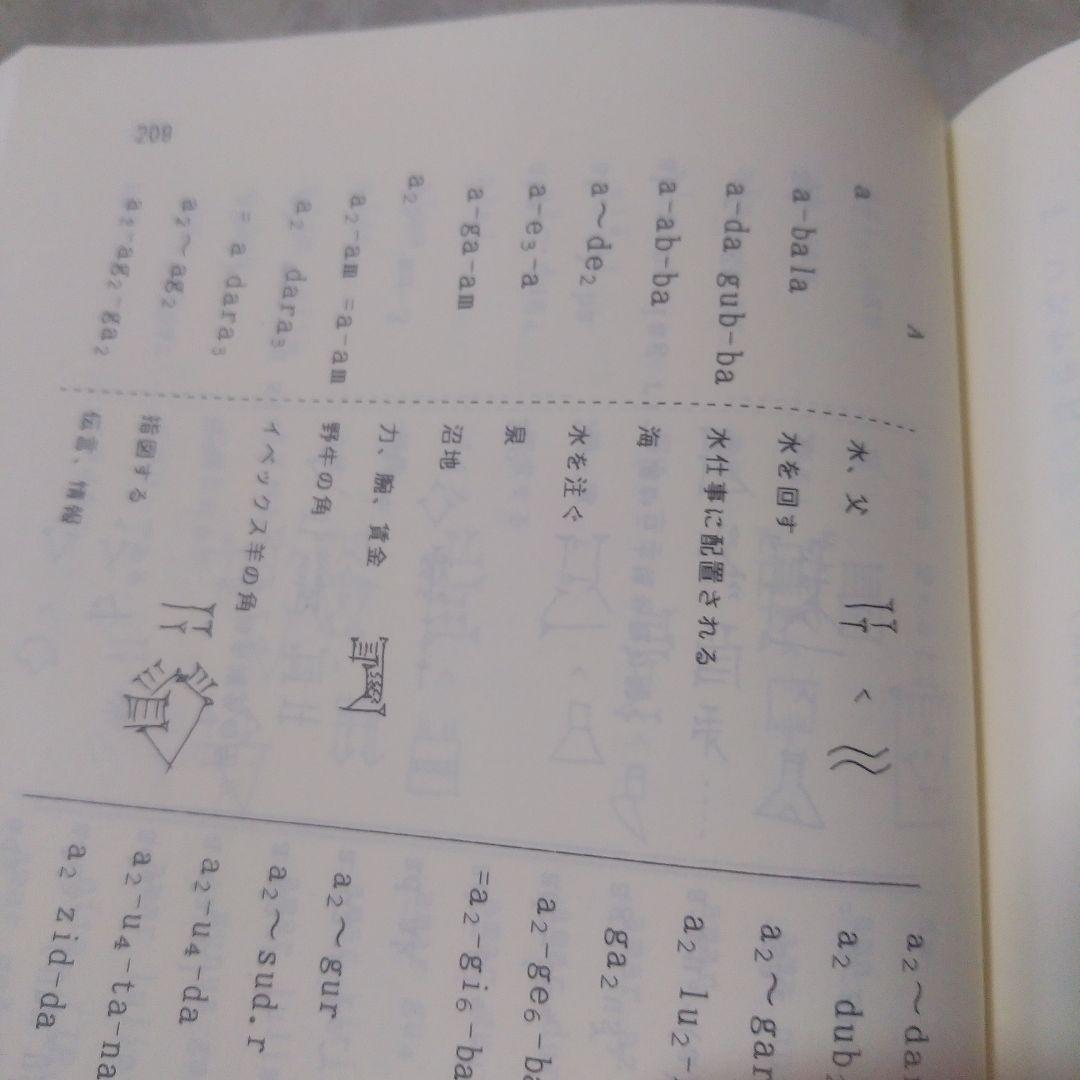 A
a 水、父 <
a-bala 水を回す
a-da gub-ba 水仕事に配置される
a-ab-ba 海
a〜de₂ 水を注ぐ
a-e₃-a 泉
a-ga-am 沼地
a₂ 力、腕、賃金
a₂-am =a-am 野牛の角
a₂ dara₃ イベックス羊の角
=a dara₃
a₂〜ag₂ 指図する
a₂-ag₂-ga₂ 伝言、情報
208
a₂〜da
a₂ dub
a₂〜gar
a₂ lu₂-
ga₂
a₂-ge₆-ba
=a₂-gi₆-ba
a₂〜gur
a₂〜sud.r
a₂-u₄-da
a₂-u₄-ta-na
a₂ zid-da